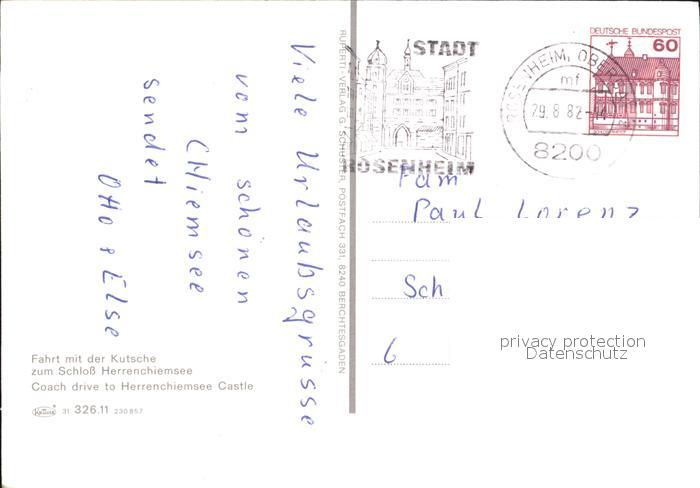 Viele Urlaubsgrüsse
vom schönen
Chiemsee
sendet
Otto & Else
Fahrt mit der Kutsche
zum Schloß Herrenchiemsee
Coach drive to Herrenchiemsee Castle
Krüger 31 326.11 230857
RUPERTI-VERLAG G. SCHUSTER, POSTFACH 331, 8240 BERCHTESGADEN
STADT
ROSENHEIM
ROSENHEIM, OBERB
mf
29.8.82
8200
DEUTSCHE BUNDESPOST
60
Fam
Paul Lorenz
Sch
6
privacy protection
Datenschutz